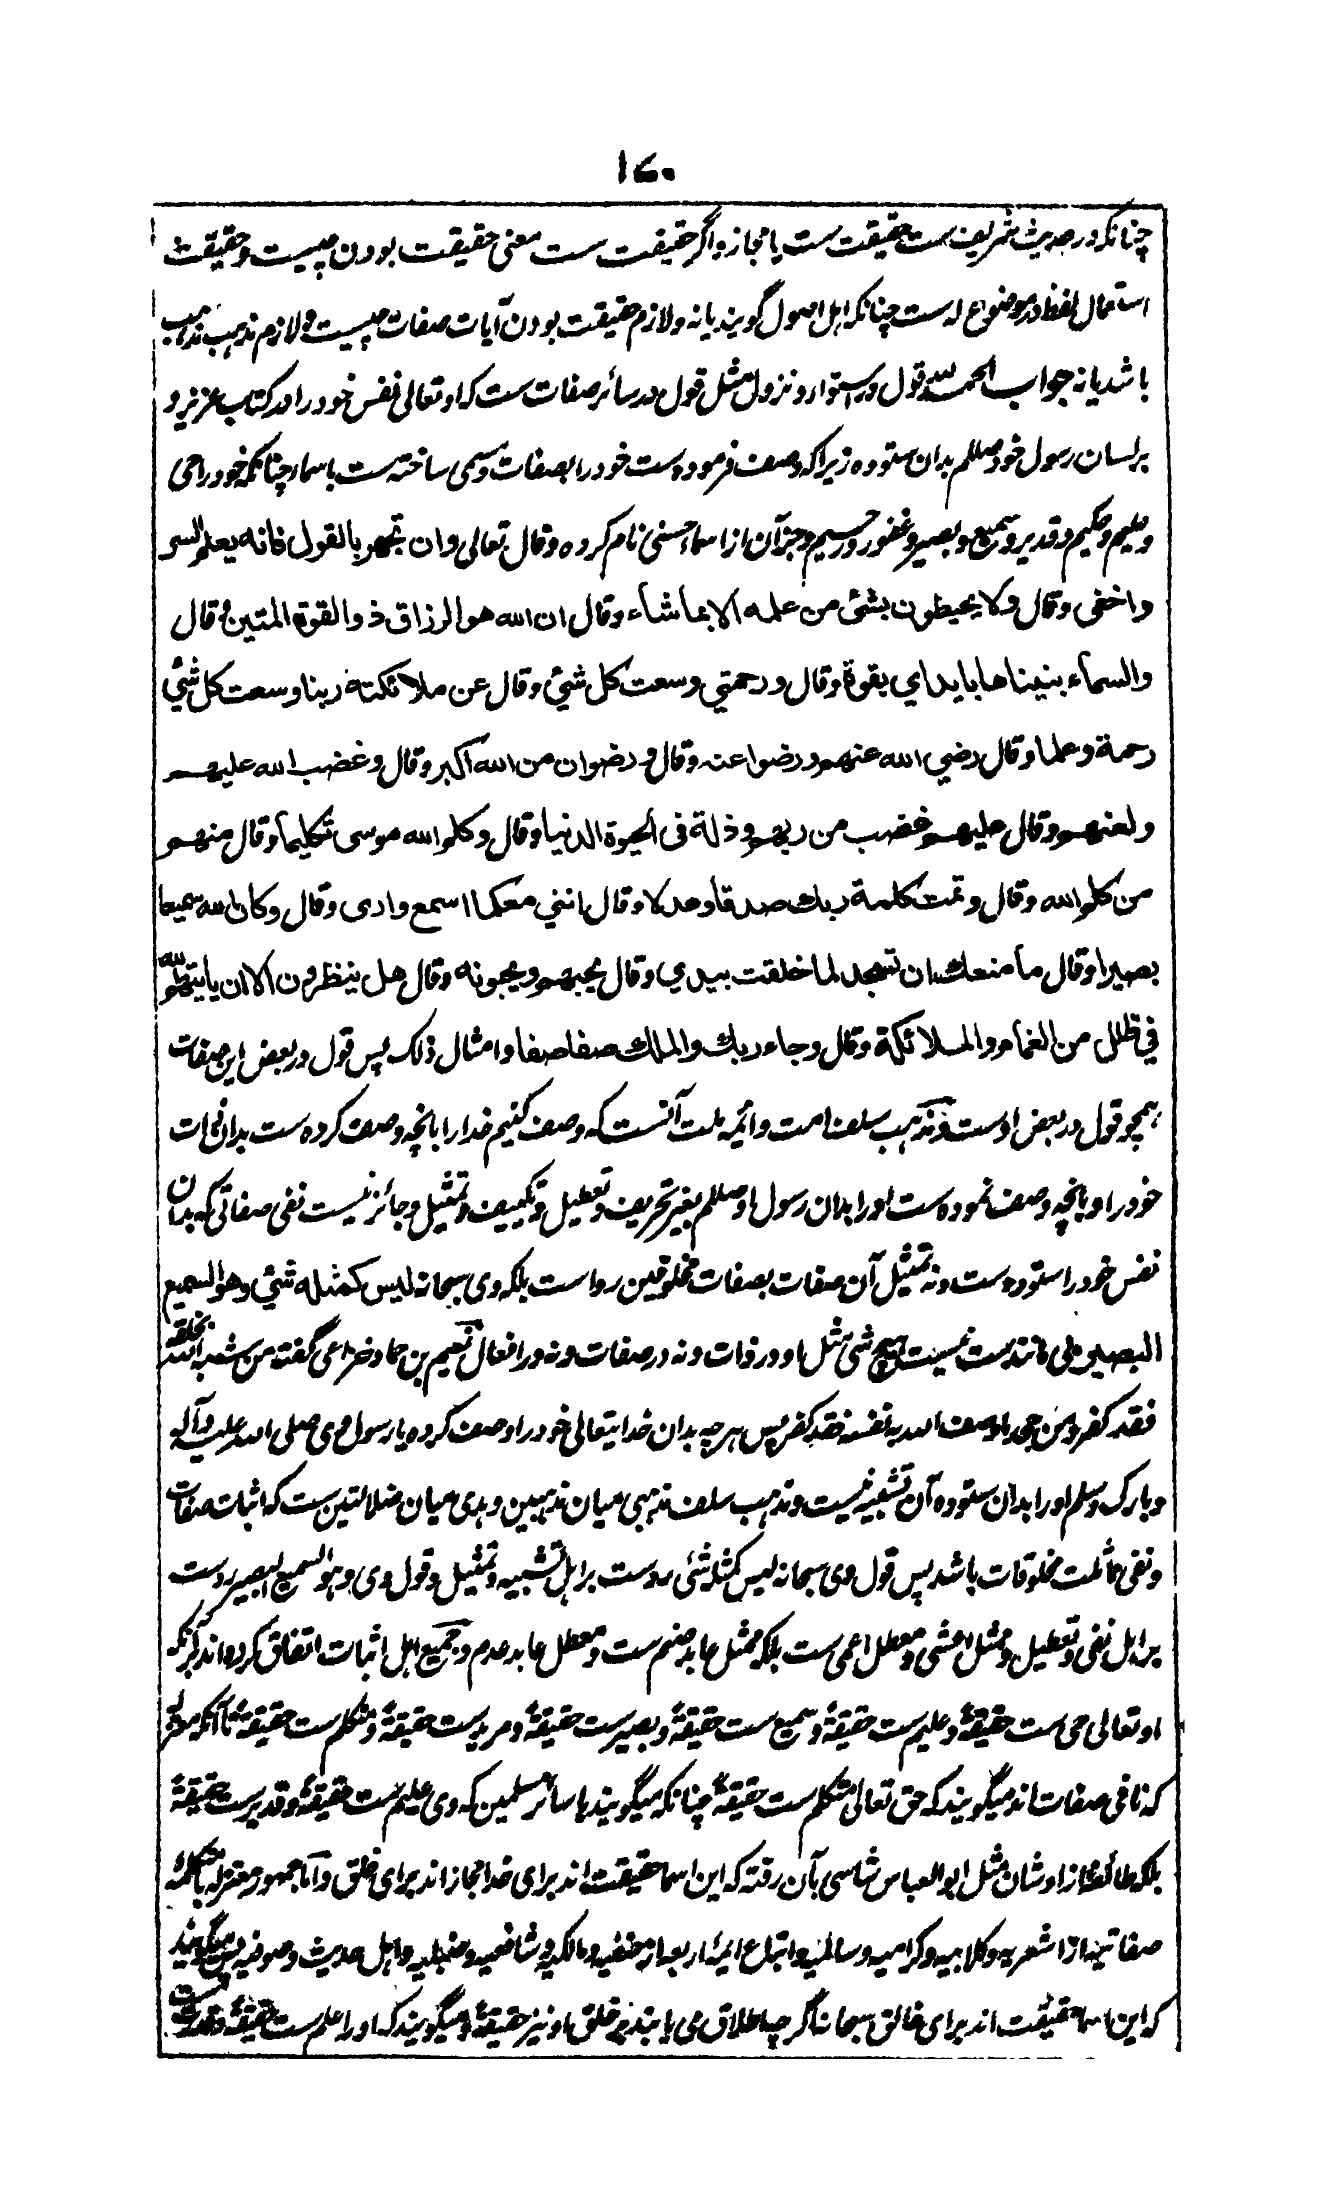 ۱۷۰
چنانکه در حدیث شریف ست حقیقت ست یا مجاز و اگر حقیقت ست معنی حقیقت بودن چیست و حقیقت
استعمال لفظ در موضوع له ست چنانکه اهل اصول گویند یا نه و لازم حقیقت بودن آیات صفات چیست و لازم مذهب مذهب
باشد یا نه جواب الحمد لله قول در استوار و نزول مثل قول در سائر صفات ست که او تعالی نفس خود را در کتاب عزیز و
بر لسان رسول خود صللم بدان ستوده زیرا که وصف فرموده ست خود را بصفات و مسمی ساخته ست باسماء چنانکه خود را حی
و علیم و حکیم و قدیر و سمیع و بصیر و غفور و رحیم و جز آن از اسماء حسنی نام کرده و قال تعالی و ان تجهر بالقول فانه یعلم السر
و اخفی و قال ولا یحیطون بشئ من علمه الا بما شاء و قال ان الله هو الرزاق ذو القوة المتین و قال
والسماء بنیناها باید ای بقوة و قال و رحمتي وسعت كل شئ و قال عن ملائكته ربنا وسعت كل شئ
رحمة وعلما وقال رضي الله عنهم ورضوا عنه وقال ورضوان من الله اكبر وقال وغضب الله عليهم
ولعنهم وقال عليهم غضب من ربهم وذلة فى الحيوة الدنيا وقال وكلم الله موسى تكليما وقال منهم
من كلم الله وقال وتمت كلمة ربك صدقا وعدلا وقال انني معكما اسمع وارى وقال وكان الله سميعا
بصيرا وقال ما منعك ان تسجد لما خلقت بيدي وقال يحبهم ويحبونه وقال هل ينظرون الا ان ياتيهم الله
في ظلل من الغمام والملائكة وقال وجاء ربك والملك صفا صفا و امثال ذلک پس قول در بعض این صفات
همچو قول در بعض اوست و مذهب سلف امت و ائمه ملت آنست که وصف کنیم خدا را بانچه وصف کرده ست بدان ذات
خود را و بانچه وصف نموده ست او را بدان رسول او صللم بغیر تحریف و تعطیل و تکییف و تمثیل و جائز نیست نفی صفاتی که بدان
نفس خود را ستوده ست و نه تمثیل آن صفات بصفات مخلوقین روا ست بلکه وی سبحانه لیس کمثله شئ وهو السمیع
البصیر بی مانند ست نیست هیچ شی مثل او در ذات و نه در صفات و نه در افعال نعیم بن حماد خزاعی گفته من شبه الله بخلقه
فقد کفر و من جحد ما وصف الله به نفسه فقد کفر پس هر چه بدان خدایتعالی خود را وصف کرده یا رسول وی صلی الله علیه و آله
و بارک و سلم او را بدان ستوده آن تشبیه نیست و مذهب سلف مذهبی میان مذهبین و هدی میان ضلالتین ست که اثبات صفات
و نفی مماثلت مخلوقات باشد پس قول وی سبحانه لیس کمثله شئی ردست بر اهل تشبیه و تمثیل و قول وی و هو السمیع البصیر ردست
بر اهل نفی و تعطیل و ممثل اعشی و معطل اعمی ست بلکه ممثل عابد صنم ست و معطل عابد عدم و جمیع اهل اثبات اتفاق کرده اند بر آنکه
او تعالی حی ست حقیقةً و علیم ست حقیقةً و سمیع ست حقیقةً و بصیر ست حقیقةً و مرید ست حقیقةً و متکلم ست حقیقةً تا آنکه معتزله
که نافی صفات اند میگویند که حق تعالی متکلم ست حقیقةً چنانکه میگویند با سائر مسلمین که وی علیم ست حقیقةً و قدیر ست حقیقةً
بلکه طائفه از اوشان مثل ابو العباس شاسی بآن رفته که این اسما حقیقت اند برای خدا مجاز اند برای خلق و اما جمهور معتزله با متکلمهٔ
صفاتیه از اشعریه و کلابیه و کرامیه و سالمیه و اتباع ائمهٔ اربعه از حنفیه و مالکیه و شافعیه و حنبلیه و اهل حدیث و صوفیه پس میگویند
که این اسما حقیقت اند برای خالق سبحانه اگر چه اطلاق می یابند بر خلق او نیز حقیقةً و میگویند که او را علم ست حقیقةً و قدرت